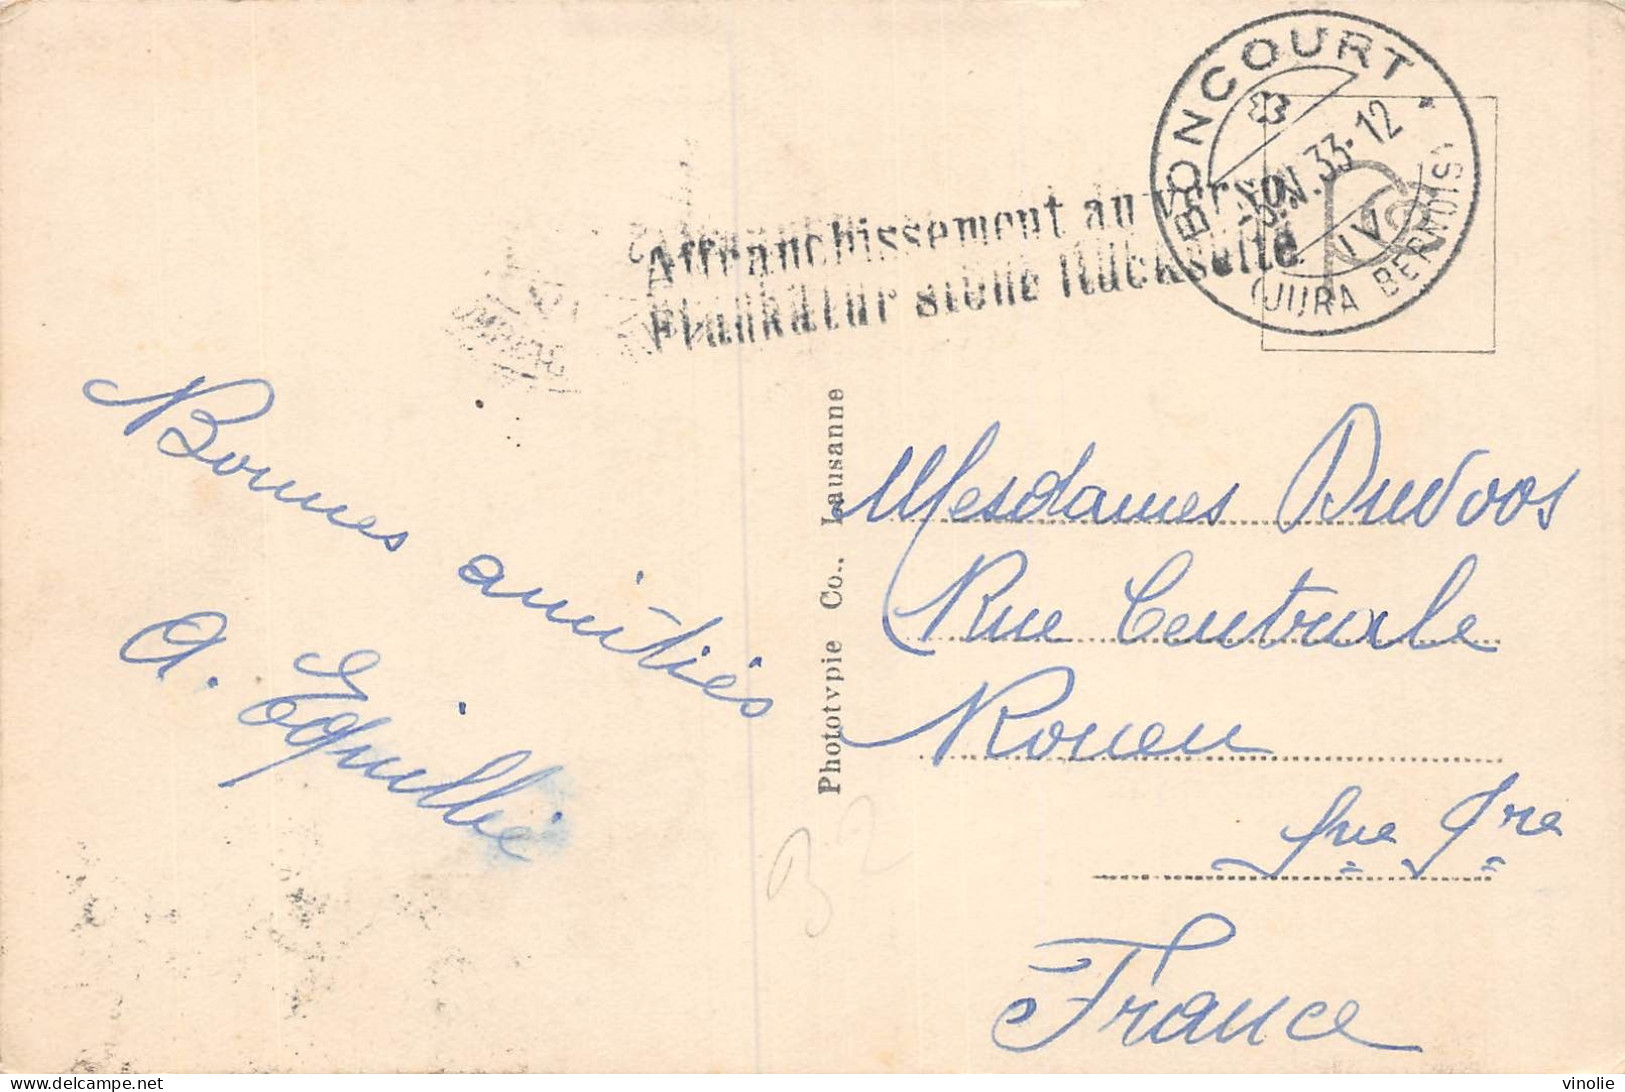 BONCOURT
33-12
(JURA BERNOIS)
Affranchissement au verso
Frankatur siehe Rückseite
Bonnes amitiés
Phototypie Co., Lausanne
Mesdames
Rue Centrale
Rouen
Sne Jre
France
B2
vinolie